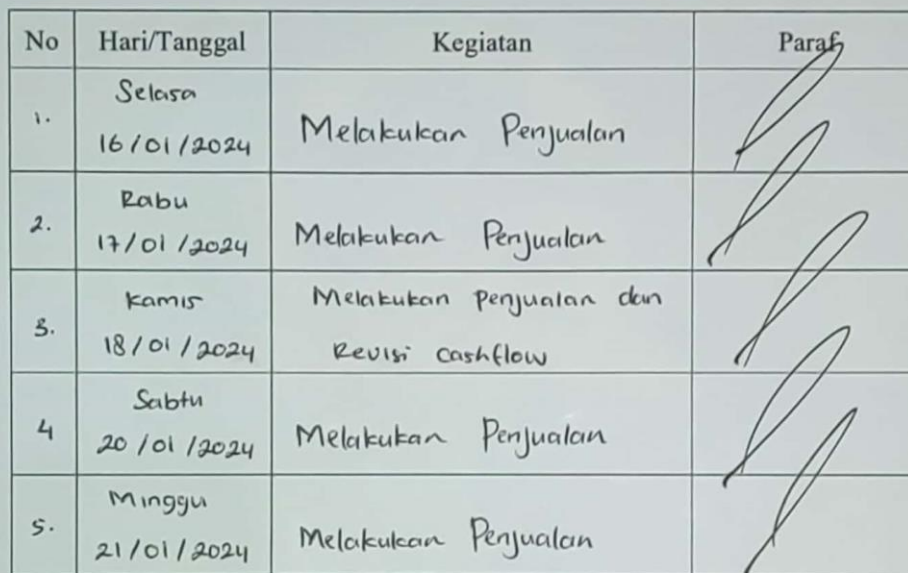 No Hari/Tanggal Kegiatan Paraf
1. Selasa
16/01/2024 Melakukan Penjualan
2. Rabu
17/01/2024 Melakukan Penjualan
3. Kamis
18/01/2024 Melakukan Penjualan dan
Revisi Cashflow
4 Sabtu
20/01/2024 Melakukan Penjualan
5. Minggu
21/01/2024 Melakukan Penjualan